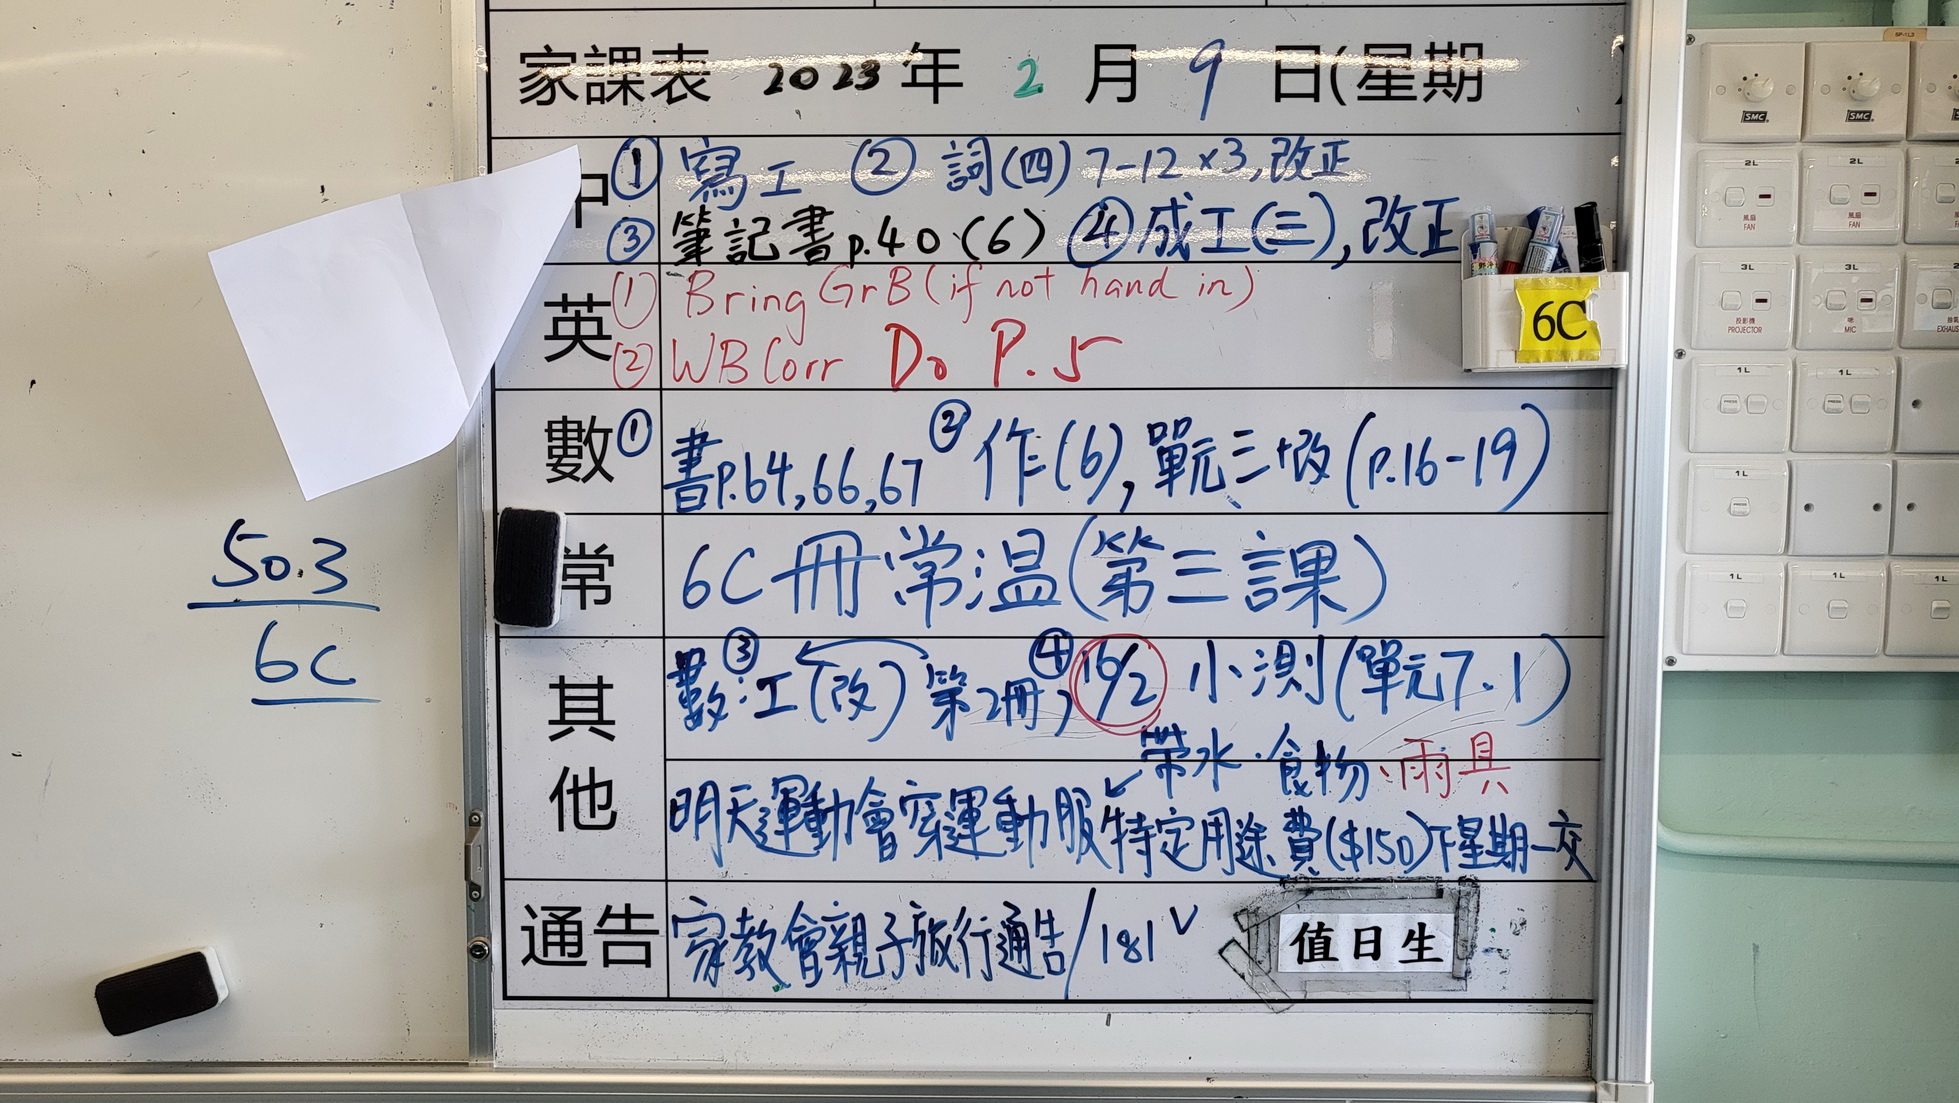 家課表 2023 年 2 月 9 日(星期
中 ① 寫工 ② 詞(四)7-12×3,改正
③ 筆記書p.40(6) ④ 成工(三),改正
英 ① Bring GrB (if not hand in)
② WB Corr Do P.5
6C
數 ① 書p.64,66,67 ② 作(6),單元三+改(p.16-19)
常 6C冊常溫(第三課)
50.3
6C
其他 ③ 數:工(改)第2冊, ④ 16/2 小測(單元7.1)
帶水、食物、雨具
明天運動會穿運動服 特定用途費($150)下星期一交
通告 家教會親子旅行通告/181 V
值日生
SP-1L3
SMC SMC
2L 2L
風扇 風扇
FAN FAN
3L 3L
投影機 咪
PROJECTOR MIC
EXHAUS
1L 1L
1L
1L 1L 1L